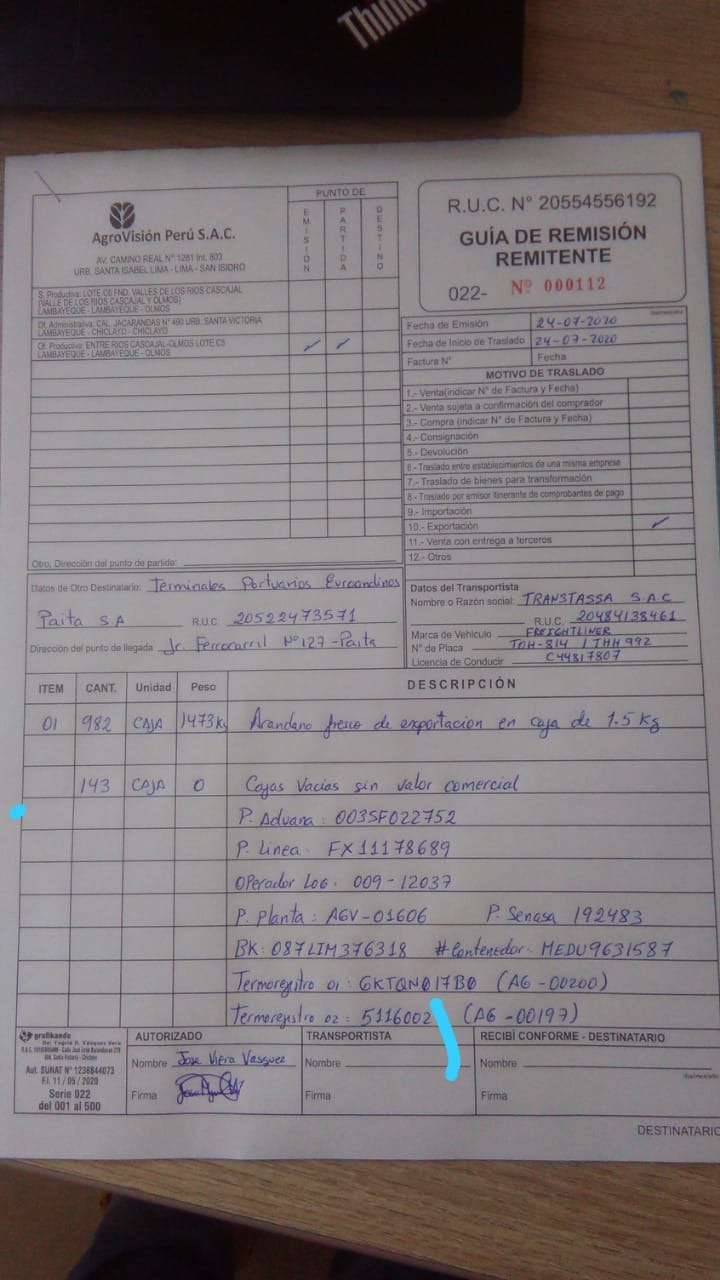 Think
AgroVisión Perú S.A.C.
AV. CAMINO REAL N° 1281 Int. 803
URB. SANTA ISABEL LIMA - LIMA - SAN ISIDRO
PUNTO DE
EMISIÓN
PARTIDA
DESTINO
S. Productiva: LOTE C6 FND. VALLES DE LOS RIOS CASCAJAL
(VALLE DE LOS RIOS CASCAJAL Y OLMOS)
LAMBAYEQUE - LAMBAYEQUE - OLMOS
Of. Administrativa: CAL. JACARANDAS N° 490 URB. SANTA VICTORIA
LAMBAYEQUE - CHICLAYO - CHICLAYO
Of. Productiva: ENTRE RIOS CASCAJAL-OLMOS LOTE C5
LAMBAYEQUE - LAMBAYEQUE - OLMOS
✓ ✓
Otro, Dirección del punto de partida:
R.U.C. N° 20554556192
GUÍA DE REMISIÓN
REMITENTE
022- Nº 000112
Fecha de Emisión 24-07-2020
Fecha de Inicio de Traslado 24-07-2020
Factura N° Fecha
MOTIVO DE TRASLADO
1.- Venta(indicar N° de Factura y Fecha)
2.- Venta sujeta a confirmación del comprador
3.- Compra (indicar N° de Factura y Fecha)
4.- Consignación
5.- Devolución
6.- Traslado entre establecimientos de una misma empresa
7.- Traslado de bienes para transformación
8.- Traslado por emisor itinerante de comprobantes de pago
9.- Importación
10.- Exportación ✓
11.- Venta con entrega a terceros
12.- Otros
Datos de Otro Destinatario: Terminales Portuarios Euroandinos
Paita S.A R.U.C. 20522473571
Dirección del punto de llegada Jr. Ferrocarril Nº127 - Paita
Datos del Transportista
Nombre o Razón social: TRANSTASSA S.A.C
R.U.C. 20484138461
Marca de Vehículo FREIGHTLINER
N° de Placa
Licencia de Conducir C44817807
ITEM CANT. Unidad Peso DESCRIPCIÓN
01 982 CAJA 1473Kg Arandano fresco de exportacion en caja de 1.5 Kg
143 CAJA 0 Cajas Vacias sin valor comercial
P. Aduana: 0035F022752
P. Linea: FX11178689
OPerador LOG. 009-12037
P. Planta: AGV-01606 P. Senasa 192483
BK: 087LIM376318 #Contenedor: MEDU9631587
Termoregitro 01: GKTQN017B0 (AG-00200)
Termoregistro 02: 5116002 (AG-00197)
grafikando
Aut. SUNAT N° 1236844073
F.I. 11 / 05 / 2020
Serie 022
del 001 al 500
AUTORIZADO
Nombre Jose Viera Vasquez
Firma
TRANSPORTISTA
Nombre
Firma
RECIBÍ CONFORME - DESTINATARIO
Nombre
Firma
DESTINATARIO